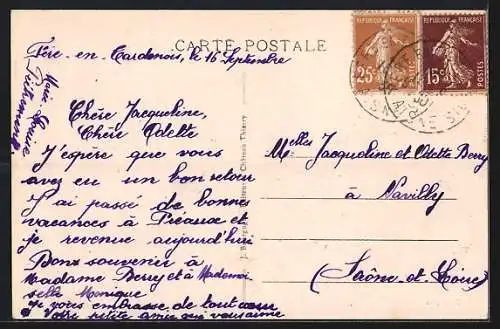 CARTE POSTALE
REPUBLIQUE FRANÇAISE
25c
POSTES
REPUBLIQUE FRANÇAISE
15c
POSTES
Fère-en-Tardenois, le 16 Septembre
Marie-Louise
Chère Jacqueline,
Chère Odette
J'espère que vous
avez eu un bon retour
J'ai passé de bonnes
vacances à Préaux et
je revenue aujourd'hui
Bons souvenir à
Madame Berry et à Mademoi
selle Monique
Je vous embrasse de tout cœur
Votre petite amie qui vous aime
Melles Jacqueline et Odette Berry
à Navilly
(Saône-et-Loire)